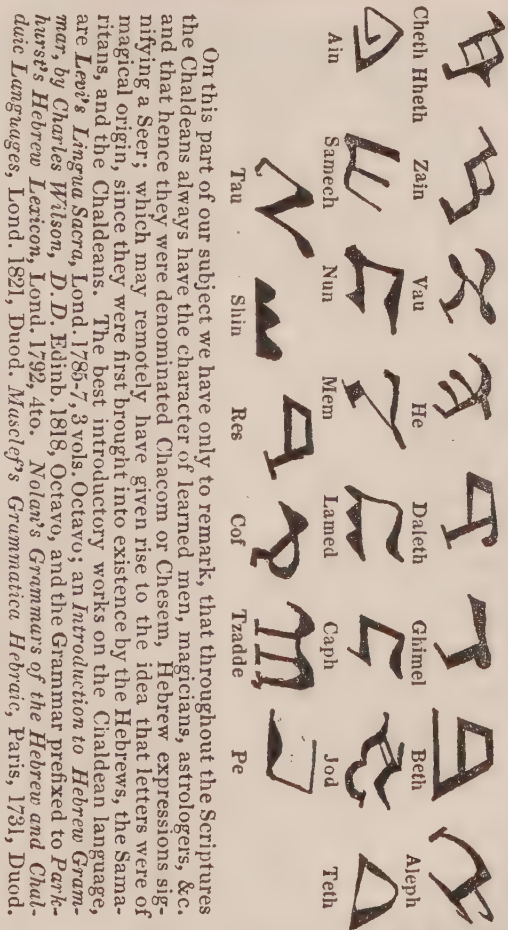 Cheth Hheth Zain Vau He Daleth Ghimel Beth Aleph
Ain Samech Nun Mem Lamed Caph Jod Teth
Tau Shin Res Cof Tzadde Pe
On this part of our subject we have only to remark, that throughout the Scriptures
the Chaldeans always have the character of learned men, magicians, astrologers, &c.
and that hence they were denominated Chacom or Chesem, Hebrew expressions sig-
nifying a Seer; which may remotely have given rise to the idea that letters were of
magical origin, since they were first brought into existence by the Hebrews, the Sama-
ritans, and the Chaldeans. The best introductory works on the Chaldean language,
are Levi's Lingua Sacra, Lond. 1785-7, 3 vols. Octavo; an Introduction to Hebrew Gram-
mar, by Charles Wilson, D.D. Edinb. 1818, Octavo, and the Grammar prefixed to Park-
hurst's Hebrew Lexicon, Lond. 1792, 4to. Nolan's Grammars of the Hebrew and Chal-
duic Languages, Lond. 1821, Duod. Musclef's Grammatica Hebraic, Paris, 1731, Duod.